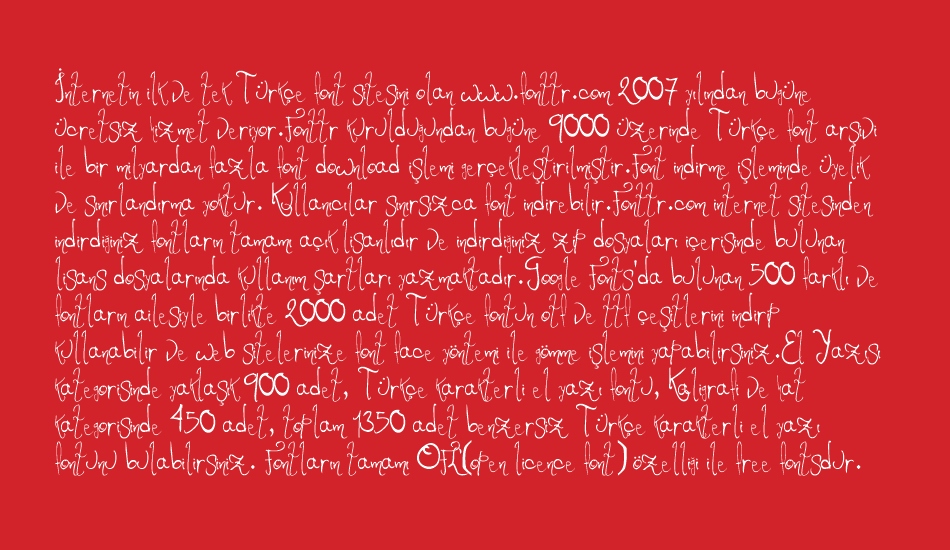 İnternetin ilk ve tek Türkçe font sitesini olan www.fonttr.com 2007 yılından bugüne
ücretsiz hizmet veriyor.Fonttr kurulduğundan bugüne 9000 üzerinde Türkçe font arşivi
ile bir milyardan fazla font download işlemi gerçekleştirilmiştir.Font indirme işleminde üyelik
ve sınırlandırma yoktur. Kullanıcılar sınırsızca font indirebilir.Fonttr.com internet sitesinden
indirdiğiniz fontların tamamı açık lisanlıdır ve indirdiğiniz zip dosyaları içerisinde bulunan
lisans dosyalarında kullanım şartları yazmaktadır.Google Fonts'da bulunan 500 farklı ve
fontların ailesiyle birlikte 2000 adet Türkçe fontun otf ve ttf çeşitlerini indirip
kullanabilir ve web sitelerinize font face yöntemi ile gömme işlemini yapabilirsiniz.El Yazısı
kategorisinde yaklaşık 900 adet, Türkçe karakterli el yazı fontu, Kaligrafi ve hat
kategorisinde 450 adet, toplam 1350 adet benzersiz Türkçe karakterli el yazı
fontunu bulabilirsiniz. Fontların tamamı OFL(open licence font) özelliği ile free fontsdur.